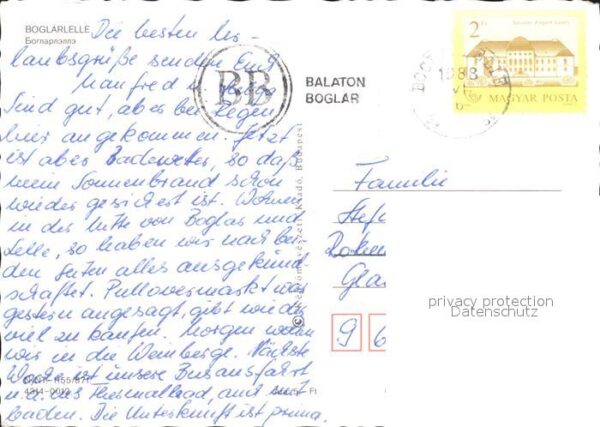 BOGLÁRLELLE
Богларлэллэ
Die besten Ur-
laubsgrüße senden Euch
Manfred u. Helga
Sind gut, aber bei Regen
hier angekommen. Jetzt
ist aber Badewetter, so daß
mein Sonnenbrand schon
wieder gesichert ist. Wohnen
in der Mitte von Boglar und
Lelle, so haben wir nach bei-
den Seiten alles ausgekund-
schaftet. Pullovermarkt war
gestern angesagt, gibt wieder
viel zu kaufen. Morgen wollen
wir in die Weinberge. Nächste
Woche ist unsere Busausfahrt
n. d. Thermalbad, mit
baden. Die Unterkunft ist prima.
BB
BALATON
BOGLÁR
2 Ft
1988
MAGYAR POSTA
Kiadó, Budapest
Familie
Stef
Gla
9 6
privacy protection
Datenschutz
Ft